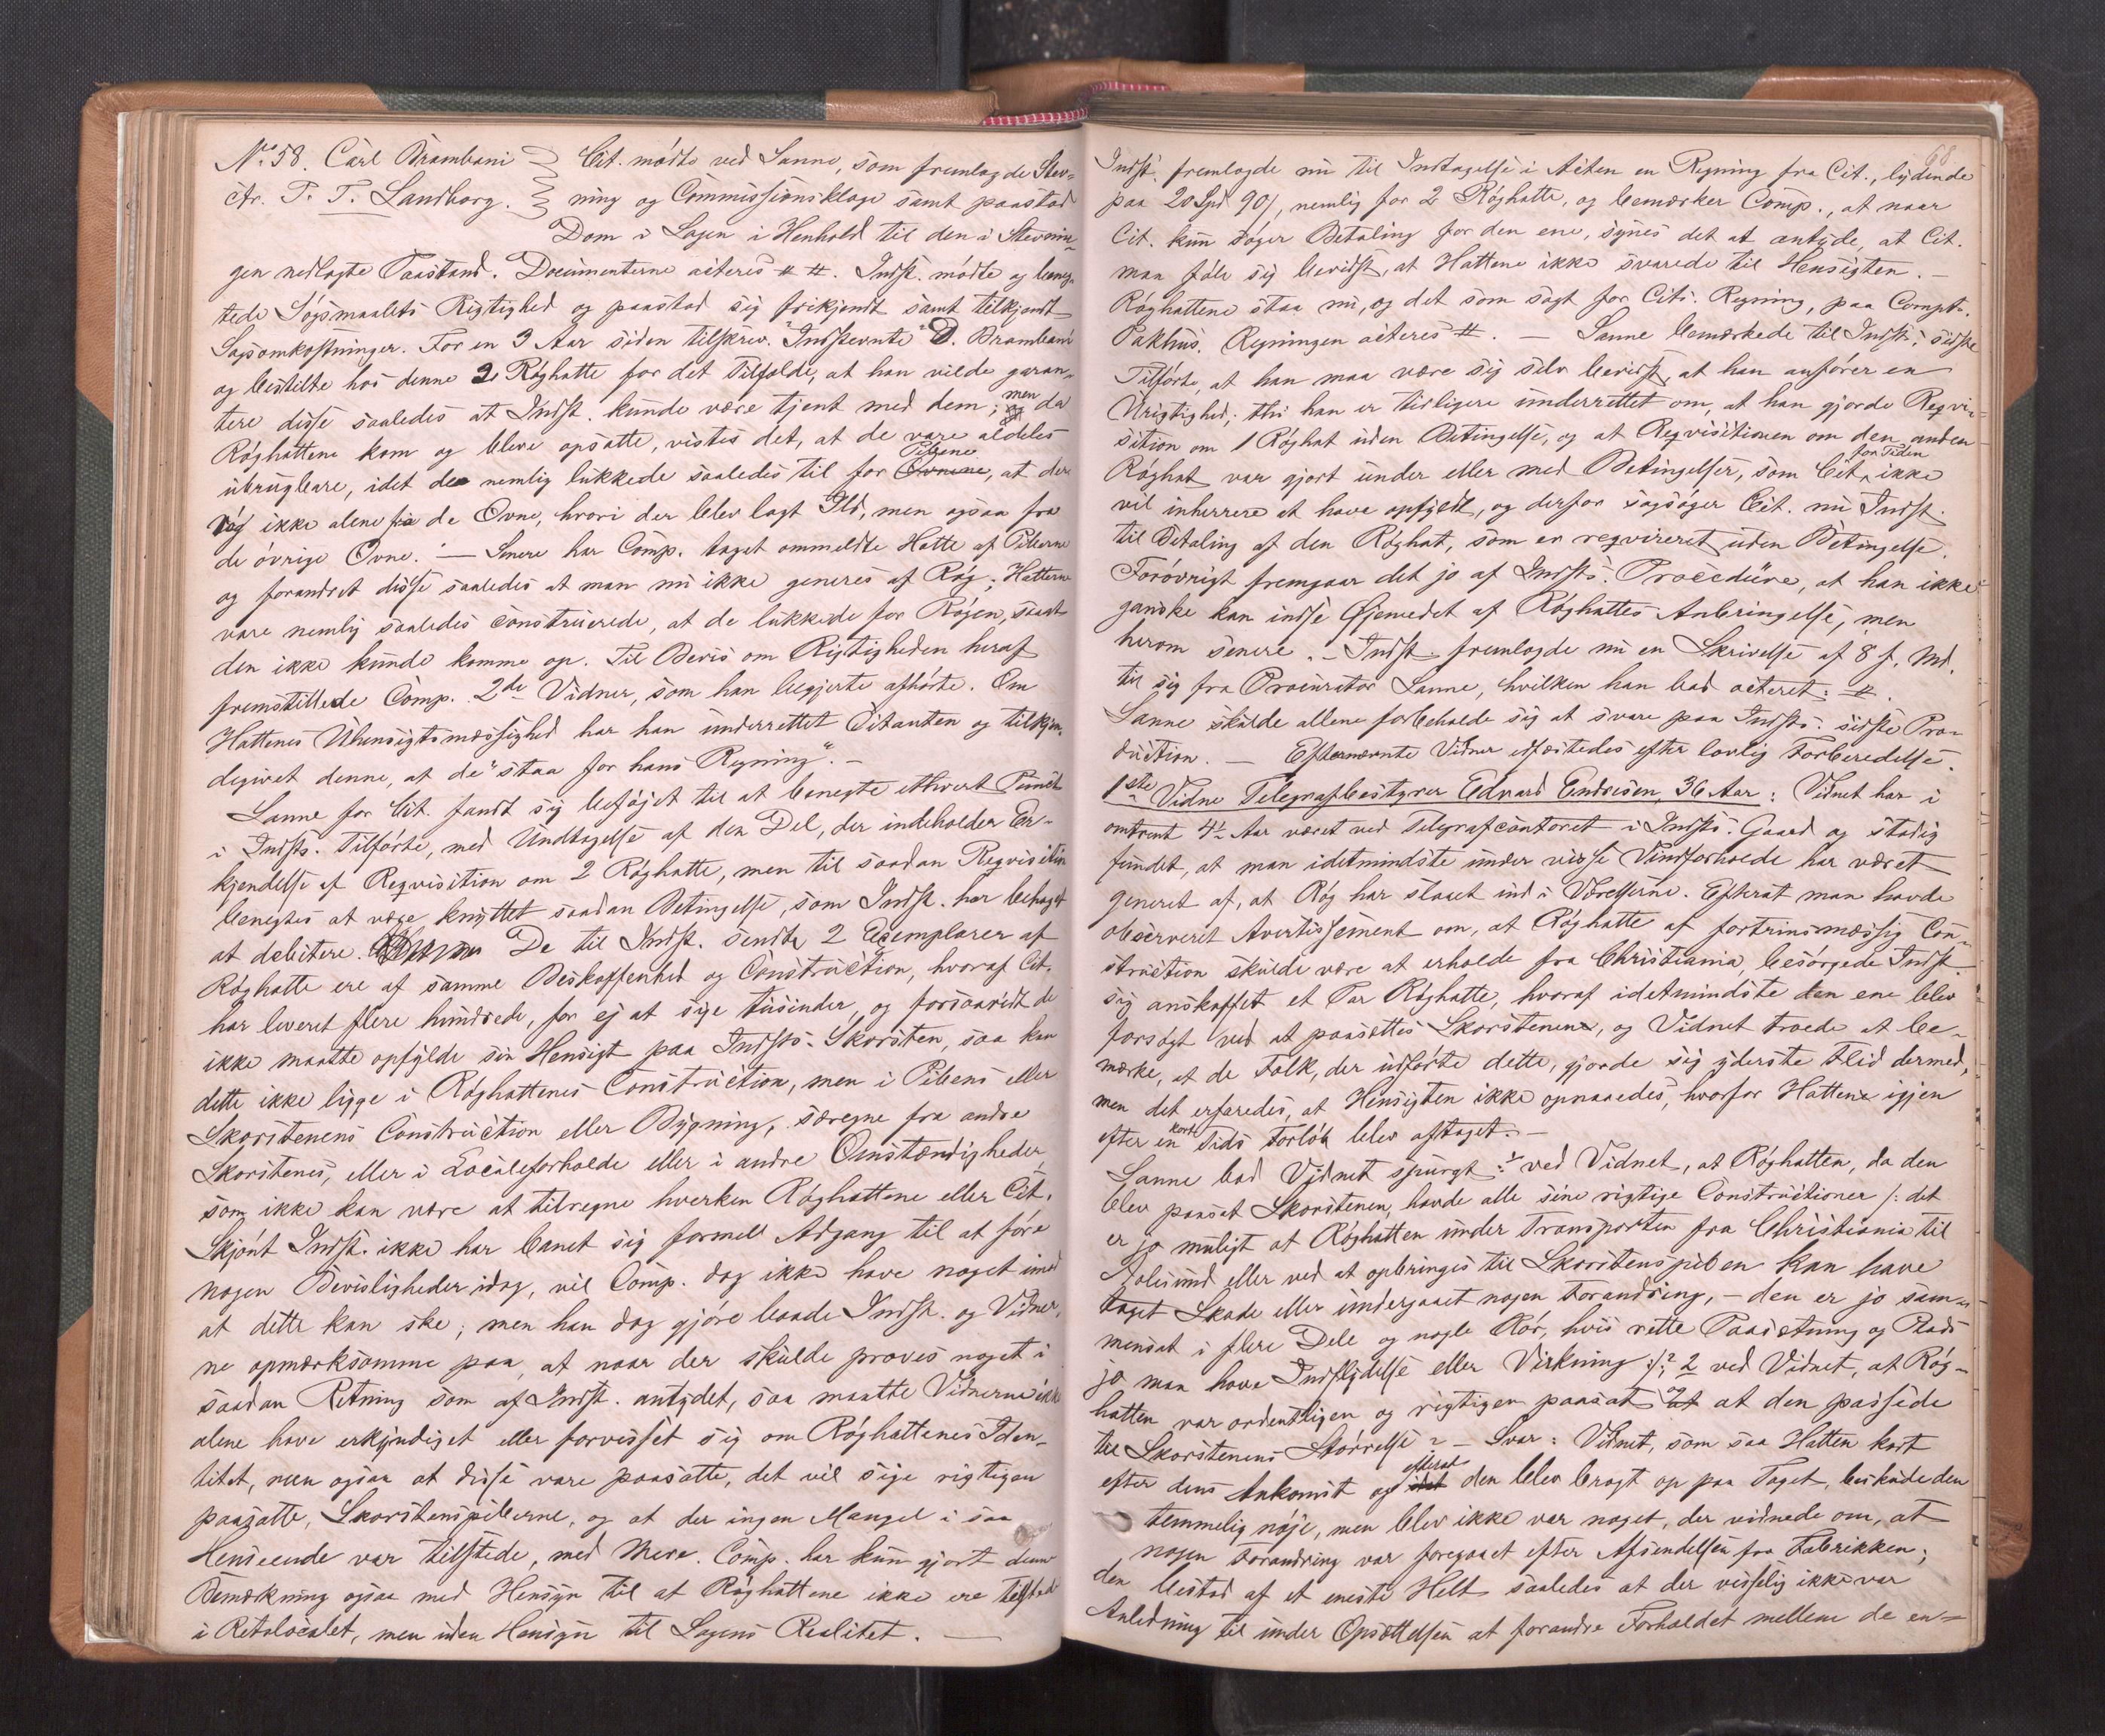 No 58. Carl Brambani
ctr. T. T. Landborg.
Cit. mødte ved Sanne, som fremlagde Stev-
ning og Commissionsklage samt paastod
Dom i Sagen i Henhold til den i Stevnin-
gen nedlagte Paastand. Documenterne acteres # #. Indst. mødte og beneg-
tede Søgsmaalets Rigtighed og paastod sig frikjendt samt tilkjendt
Sagsomkostninger. For en 3 Aar siden tilskrev "Indstevnte" D. Brambani
og bestilte hos denne 2 Røghatte for det Tilfælde, at han vilde garan-
tere disse saaledes at Indst. kunde være tjent med dem; men da
Røghattene kom og bleve opsatte, vistes det, at de vare aldeles
ubrugbare, idet de nemlig lukkede saaledes til for Pibene, at der
røg ikke alene fra de Ovne, hvori der blev lagt Ild, men ogsaa fra
de øvrige Ovne. — Senere har Comp. taget ommeldte Hatte af Piberne
og forandret disse saaledes at man nu ikke generes af Røg; Hattene
vare nemlig saaledes construerede, at de lukkede for Røgen, saa at
den ikke kunde komme op. Til Bevis om Rigtigheden heraf
fremstillede Comp. 2de Vidner, som han begjerte afhørte. Om
Hattenes Uhensigtsmæssighed har han underrettet Citanten og tilkjen-
degivet denne, at de "staa for hans Regning". —
Sanne for Cit. fandt sig beføjet til at benegte ethvert Punct
i Indsts. Tilførte, med Undtagelse af den Del, der indeholder Er-
kjendelse af Reqvisition om 2 Røghatte, men til saadan Reqvisition
benegtes at være knyttet saadan Betingelse, som Indst. har behaget
at debitere. De til Indst. sendte 2 Exemplarer af
Røghatte ere af samme Beskaffenhed og Construction, hvoraf Cit.
har leveret flere hundrede, for ej at sige tusinder, og forsaavidt de
ikke maatte opfylde sin Hensigt paa Indsts. Skorsten, saa kan
dette ikke ligge i Røghattenes Construction, men i Pibens eller
Skorstenens Construction eller Bygning, særegne fra andre
Skorstenes, eller i Localeforholde eller i andre Omstændigheder,
som ikke kan være at tilregne hverken Røghattene eller Cit.
Skjønt Indst. ikke har banet sig formel Adgang til at føre
nogen Bevisligheder idag, vil Comp. dog ikke have noget imod
at dette kan ske; men han dog gjøre baade Indst. og Vidner-
ne opmærksomme paa, at naar der skulde prøves noget i
saadan Retning som af Indst. antydet, saa maatte Vidnerne ikke
alene have erkyndiget eller forvisset sig om Røghattenes Iden-
titet, men ogsaa at disse vare paasatte, det vil sige rigtigen
paasatte, Skorstenspiberne, og at der ingen Mangel i saa
Henseende var tilstede, med Mere. Comp. har kun gjort denne
Bemærkning ogsaa med Hensyn til at Røghattene ikke ere tilstede
i Retslocalet, men uden Hensyn til Sagens Realitet. —
68
Indst. fremlagde nu til Indtagelse i Acten en Regning fra Cit., lydende
paa 20 Spd 90 /, nemlig for 2 Røghatte, og bemærker Comp., at naar
Cit. kun søger Betaling for den ene, synes det at antyde, at Cit.
maa føle sig bevidst, at Hattene ikke svarede til Hensigten. —
Røghattene staa nu, og det som sagt for Cits. Regning, paa Compts.
Pakhus. Regningen acteres #. — Sanne bemærkede til Indsts. sidste
Tilførte, at han maa være sig selv bevidst, at han anfører en
Urigtighed; thi han er tidligere underrettet om, at han gjorde Reqvi-
sition om 1 Røghat uden Betingelse, og at Reqvisitionen om den anden
Røghat var gjort under eller med Betingelser, som Cit. for Tiden ikke
vil inherere at have opfyldt, og derfor sagsøger Cit. nu Indst.
til Betaling af den Røghat, som er reqvireret uden Betingelse.
Forøvrigt fremgaar det jo af Indsts. Procedure, at han ikke
ganske kan indse Øjemedet af Røghattes Anbringelse, men
herom senere. — Indst. fremlagde nu en Skrivelse af 8 f. Md.
til sig fra Procurator Sanne, hvilken han bad acteret: #.
Sanne skulde allene forbeholde sig at svare paa Indsts. sidste Pro-
duction. — Efternævnte Vidner edfæstedes efter lovlig Forberedelse.
1ste Vidne Telegrafbestyrer Edvard Endresen, 36 Aar: Vidnet har i
omtrent 4½ Aar været ved Telegrafcontoret i Indsts. Gaard og stadig
fundet, at man idetmindste under visse Vindforholde har været
generet af, at Røg har slaaet ind i Værelserne. Efterat man havde
observeret Avertissement om, at Røghatte af fortrinsmæssig Con-
struction skulde være at erholde fra Christiania, besørgede Indst.
sig anskaffet et Par Røghatte, hvoraf idetmindste den ene blev
forsøgt ved at paasættes Skorstenene, og Vidnet troede at be-
mærke, at de Folk, der udførte dette, gjorde sig yderste Flid dermed,
men det erfaredes, at Hensigten ikke opnaaedes, hvorfor Hattene igjen
efter en kort Tids Forløb blev aftaget. —
Sanne bad Vidnet spurgt: 1 ved Vidnet, at Røghatten, da den
blev paasat Skorstenen, havde alle sine rigtige Constructioner /: det
er jo muligt at Røghatten under Transporten fra Christiania til
Aalesund eller ved at opbringes til Skorstenspiben kan have
taget Skade eller undergaaet nogen Forandring, — den er jo sam-
mensat i flere Dele og nogle Rør, hvis rette Paasætning og Plads
jo maa have Indflydelse eller Virkning :/? 2 ved Vidnet, at Røg-
hatten var ordentligen og rigtigen paasat og at den passede
til Skorstenens Størrelse? — Svar: Vidnet, som saa Hatten kort
efter dens Ankomst og efterat den blev bragt op paa Taget, beskuede den
temmelig nøje, men blev ikke var noget, der vidnede om, at
nogen Forandring var foregaaet efter Afsendelsen fra Fabrikken;
den bestod af et eneste Helt saaledes at der visselig ikke var
Anledning til under Opsættelsen at forandre Forholdet mellem de en-